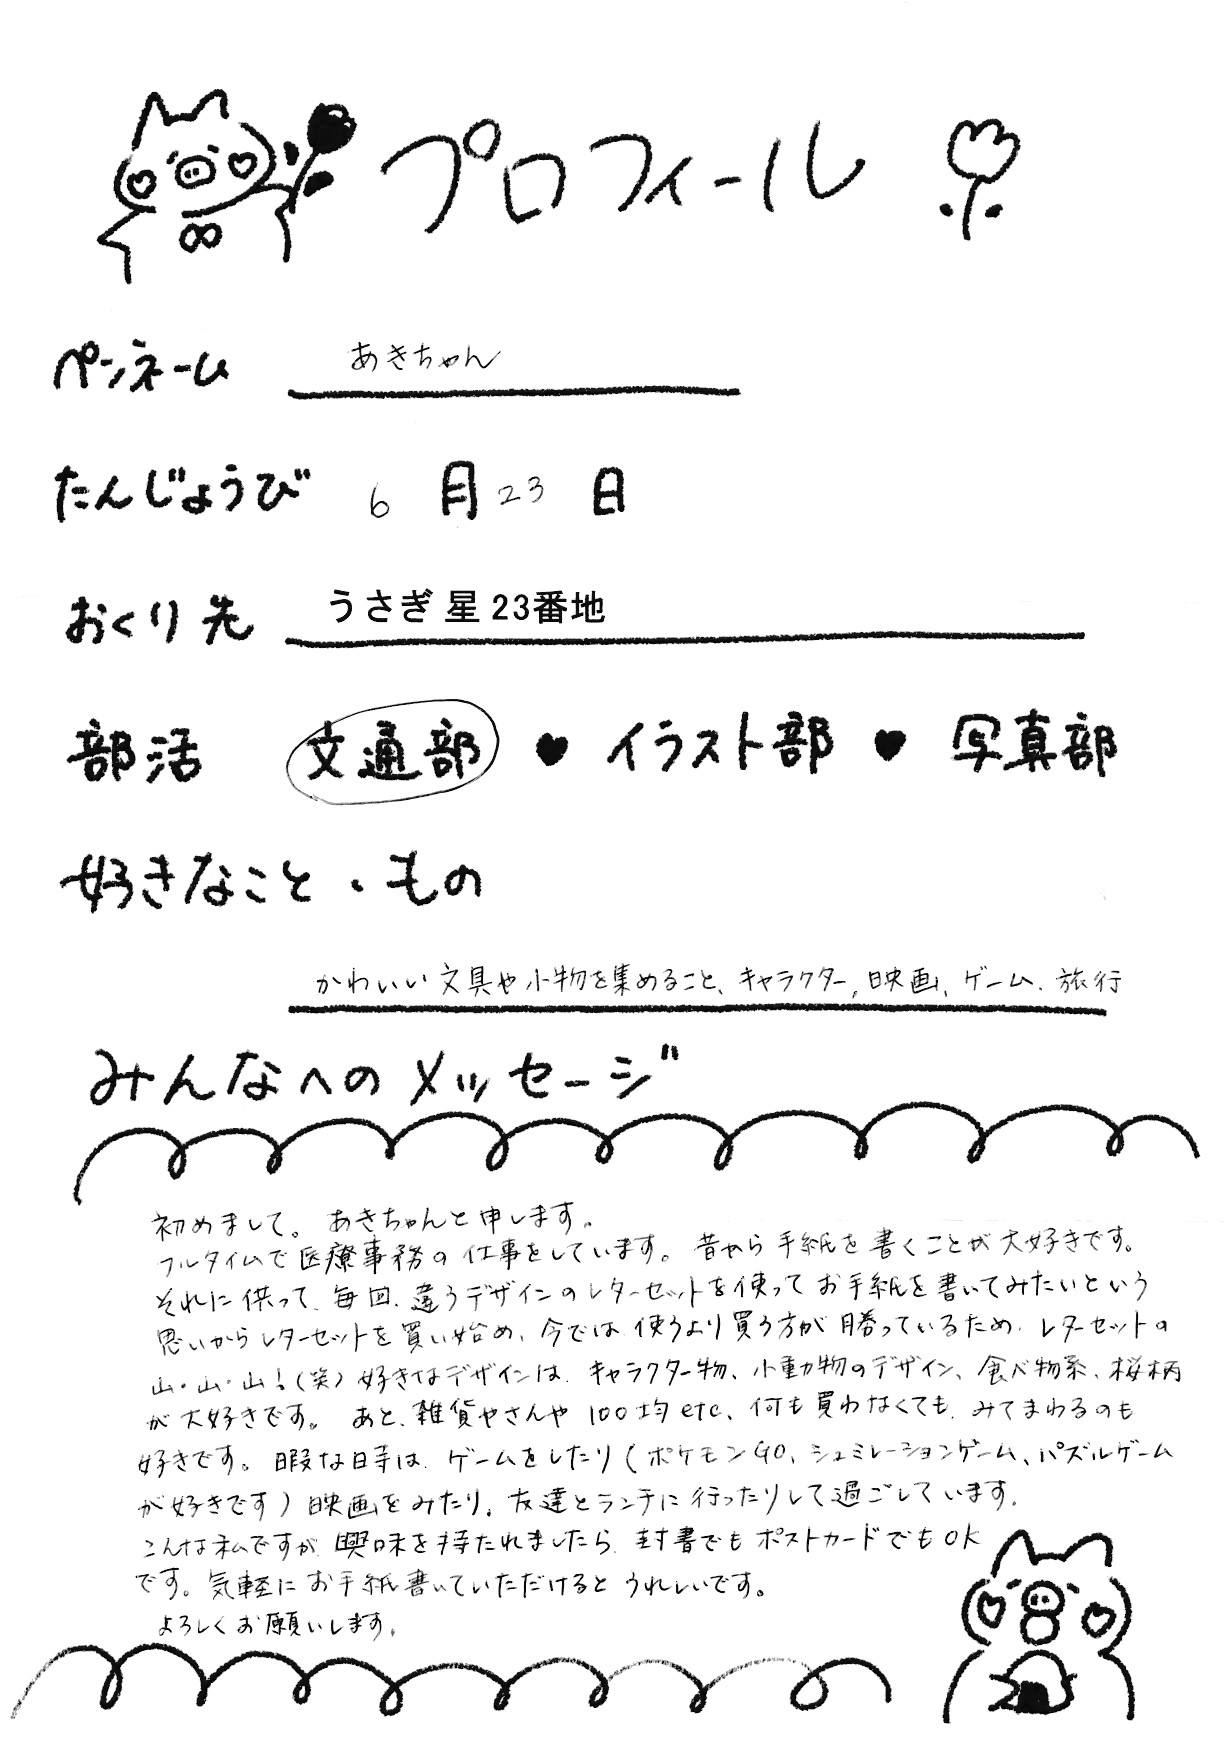 プロフィール
ペンネーム あきちゃん
たんじょうび 6月23日
おくり先 うさぎ星23番地
部活 文通部♥イラスト部♥写真部
好きなこと・もの
かわいい文具や小物を集めること、キャラクター,映画、ゲーム、旅行
みんなへのメッセージ
初めまして。あきちゃんと申します。
フルタイムで医療事務の仕事をしています。昔から手紙を書くことが大好きです。
それに供って、毎回、違うデザインのレターセットを使ってお手紙を書いてみたいという
思いからレターセットを買い始め、今では使うより買う方が勝っているため、レターセットの
山・山・山!(笑)好きなデザインは、キャラクター物、小動物のデザイン、食べ物系、桜柄
が大好きです。あと、雑貨やさんや100均etc、何も買わなくても、みてまわるのも
好きです。暇な時は、ゲームをしたり(ポケモンGO、シュミレーションゲーム、パズルゲーム
が好きです)映画をみたり、友達とランチに行ったりして過ごしています。
こんな私ですが、興味を持たれましたら、封書でもポストカードでもOK
です。気軽にお手紙書いていただけるとうれしいです。
よろしくお願いします。